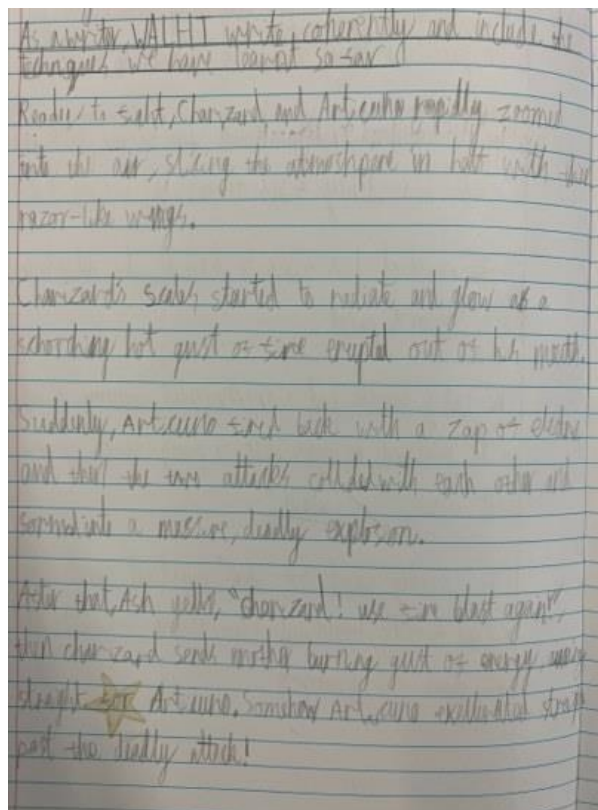 As a writer, WALHT write coherently and include the
techniques we have learnt so far
Ready to fight, Charizard and Articuno rapidly zoomed
into the air, slicing the atmoshpare in half with their
razor-like wings.
Charizard's scales started to radiate and glow as a
schorching hot gust of fire erupted out of his mouth.
Suddenly, Articuno fired back with a zap of electric
and then the two attacks collided with each other and
formed into a massive, deadly explosion.
After that, Ash yells, "charizard! use fire blast again!",
then charizard sends another burning gust of energy,
straight for Articuno. Somehow Articuno exellerated straight
past the deadly attack!